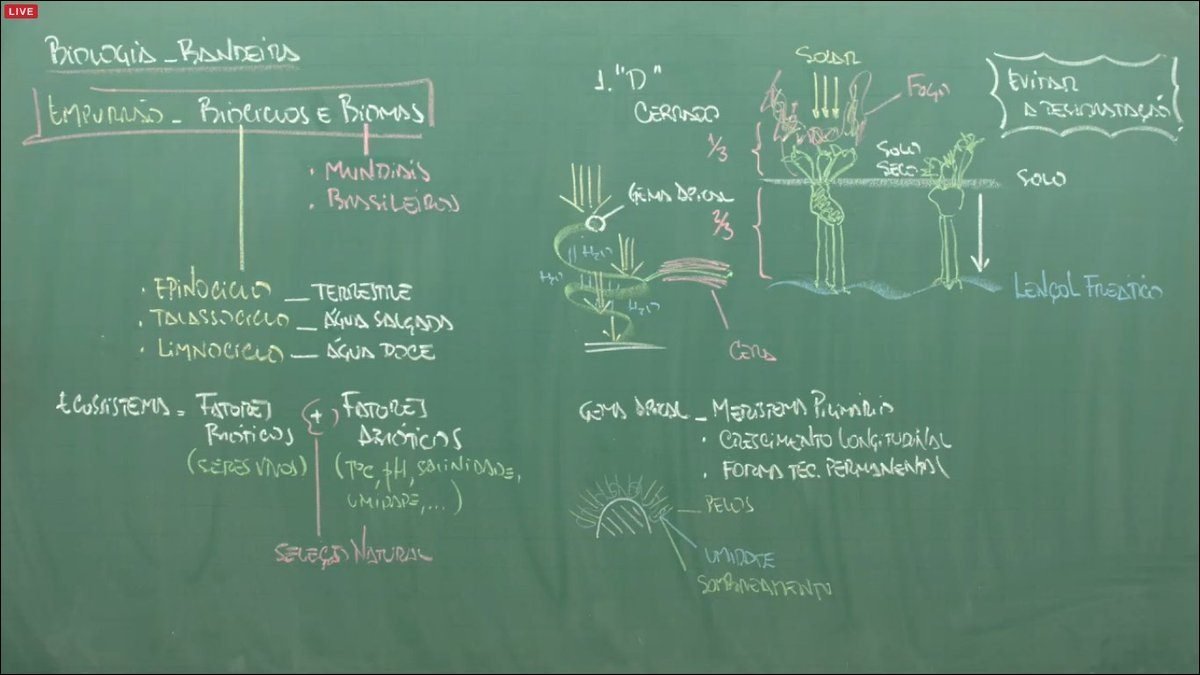 LIVE
BIOLOGIA _ BANDEIRA
EMPURRÃO _ BIOCICLOS E BIOMAS
• MUNDIAIS
• BRASILEIROS
• EPINOCICLO _ TERRESTRE
• TALASSOCICLO _ ÁGUA SALGADA
• LIMNOCICLO _ ÁGUA DOCE
ECOSSISTEMA = FATORES BIÓTICOS (SERES VIVOS)
(+)
FATORES ABIÓTICOS
(TºC, pH, SALINIDADE,
UMIDADE, ...)
SELEÇÃO NATURAL
1. "D"
CERRADO
SOLAR
FOGO
EVITAR
A DESIDRATAÇÃO
1/3
SOLO
SECO
SOLO
GEMA APICAL
2/3
H2O
H2O
H2O
LENÇOL FREÁTICO
CERA
GEMA APICAL _ MERISTEMA PRIMÁRIO
• CRESCIMENTO LONGITUDINAL
• FORMA TEC. PERMANENTES
PELOS
UMIDADE
SOMBREAMENTO